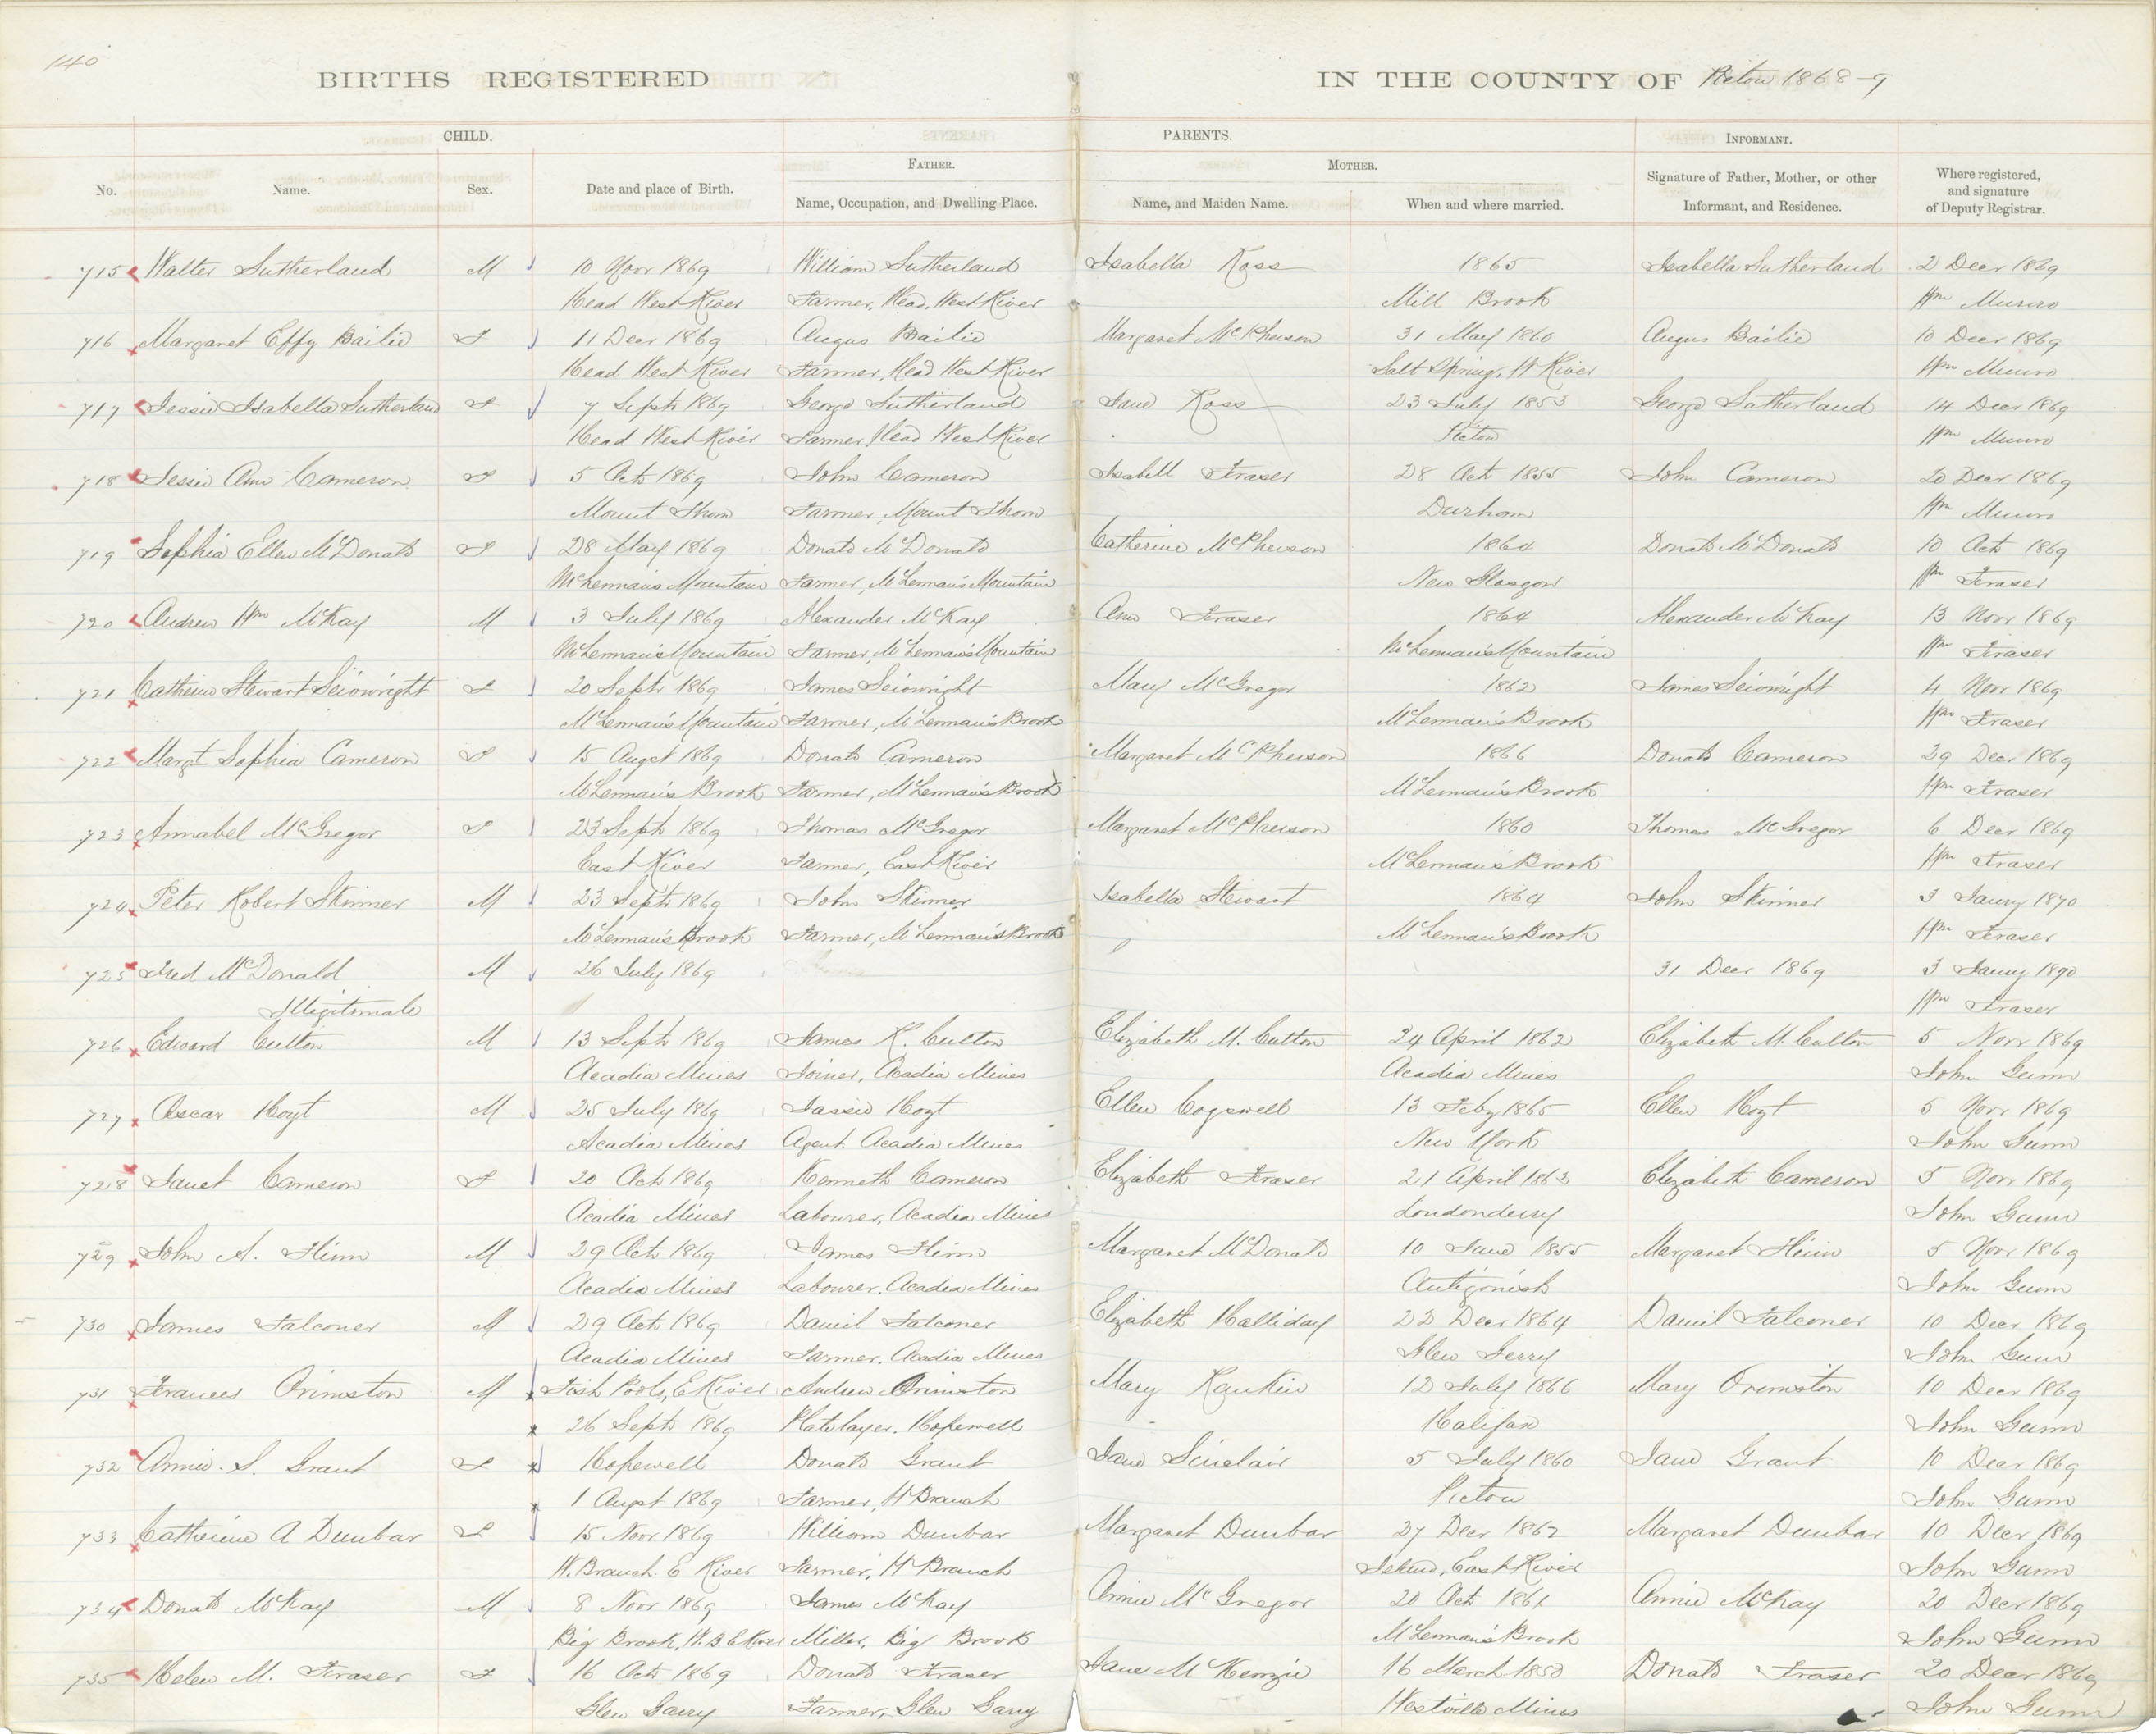 140
BIRTHS REGISTERED IN THE COUNTY OF Pictou 1868-9
CHILD. PARENTS. INFORMANT.
FATHER. MOTHER.
No. Name. Sex. Date and place of Birth. Name, Occupation, and Dwelling Place. Name, and Maiden Name. When and where married. Signature of Father, Mother, or other Informant, and Residence. Where registered, and signature of Deputy Registrar.
715 Walter Sutherland M 10 Novr 1869 William Sutherland Isabella Ross 1865 Isabella Sutherland 2 Decr 1869
Head West River Farmer, Head West River Mill Brook Wm Munro
716 Margaret Effy Bailie F 11 Decr 1869 Angus Bailie Margaret McPherson 31 May 1860 Angus Bailie 10 Decr 1869
Head West River Farmer, Head West River Salt Spring, W River Wm Munro
717 Jessie Isabella Sutherland F 7 Septr 1869 George Sutherland Jane Ross 23 July 1853 George Sutherland 14 Decr 1869
Head West River Farmer, Head West River Pictou Wm Munro
718 Jessie Ann Cameron F 5 Oct 1869 John Cameron Isabell Fraser 28 Oct 1855 John Cameron 20 Decr 1869
Mount Thom Farmer, Mount Thom Durham Wm Munro
719 Sophia Ellen McDonald F 28 May 1869 Donald McDonald Catherine McPherson 1864 Donald McDonald 10 Oct 1869
McLennan's Mountain Farmer, McLennan's Mountain New Glasgow Wm Fraser
720 Andrew Wm McKay M 3 July 1869 Alexander McKay Ann Fraser 1864 Alexander McKay 13 Novr 1869
McLennan's Mountain Farmer, McLennan's Mountain McLennan's Mountain Wm Fraser
721 Catherine Stewart Seiowright F 20 Septr 1869 James Seiowright Mary McGregor 1862 James Seiowright 4 Novr 1869
McLennan's Mountain Farmer, McLennan's Brook McLennan's Brook Wm Fraser
722 Margt Sophia Cameron F 15 Augst 1869 Donald Cameron Margaret McPherson 1866 Donald Cameron 29 Decr 1869
McLennan's Brook Farmer, McLennan's Brook McLennan's Brook Wm Fraser
723 Annabel McGregor F 23 Septr 1869 Thomas McGregor Margaret McPherson 1860 Thomas McGregor 6 Decr 1869
East River Farmer, East River McLennan's Brook Wm Fraser
724 Peter Robert Skinner M 23 Septr 1869 John Skinner Isabella Stewart 1864 John Skinner 3 Jany 1870
McLennan's Brook Farmer, McLennan's Brook McLennan's Brook Wm Fraser
725 Fred McDonald M 26 July 1869 31 Decr 1869 3 Jany 1870
Illegitimate Wm Fraser
726 Edward Culton M 13 Septr 1869 James K. Culton Elizabeth M. Culton 24 April 1862 Elizabeth M. Culton 5 Novr 1869
Acadia Mines Joiner, Acadia Mines Acadia Mines John Gunn
727 Oscar Hoyt M 25 July 1869 Hoyt Ellen Cogswell 13 Feby 1865 Ellen Hoyt 5 Novr 1869
Acadia Mines Agent, Acadia Mines New York John Gunn
728 Janet Cameron F 20 Oct 1869 Kenneth Cameron Elizabeth Fraser 21 April 1863 Elizabeth Cameron 5 Novr 1869
Acadia Mines Labourer, Acadia Mines Londonderry John Gunn
729 John A. Flinn M 29 Oct 1869 James Flinn Margaret McDonald 10 June 1855 Margaret Flinn 5 Novr 1869
Acadia Mines Labourer, Acadia Mines Antigonish John Gunn
730 James Falconer M 29 Oct 1869 Daniel Falconer Elizabeth Halliday 22 Decr 1864 Daniel Falconer 10 Decr 1869
Acadia Mines Farmer, Acadia Mines Glen Gerry John Gunn
731 Frances Ormiston M x Fish Pools, E River Andrew Ormiston Mary Rankin 12 July 1866 Mary Ormiston 10 Decr 1869
x 26 Septr 1869 Platelayer, Hopewell Halifax John Gunn
732 Annie. S. Grant F x Hopewell Donald Grant Jane Sinclair 5 July 1860 Jane Grant 10 Decr 1869
x 1 Augst 1869 Farmer, W Branch Pictou John Gunn
733 Catherine A Dunbar F 15 Novr 1869 William Dunbar Margaret Dunbar 27 Decr 1862 Margaret Dunbar 10 Decr 1869
W. Branch E River Farmer, W Branch Island, East River John Gunn
734 Donald McKay M 8 Novr 1869 James McKay Annie McGregor 20 Oct 1861 Annie McKay 20 Decr 1869
Big Brook, W. B. E River Miller, Big Brook McLennan's Brook John Gunn
735 Helen M. Fraser F 16 Oct 1869 Donald Fraser Jane McKenzie 16 March 1850 Donald Fraser 20 Decr 1869
Glen Garry Farmer, Glen Garry Westville Mines John Gunn